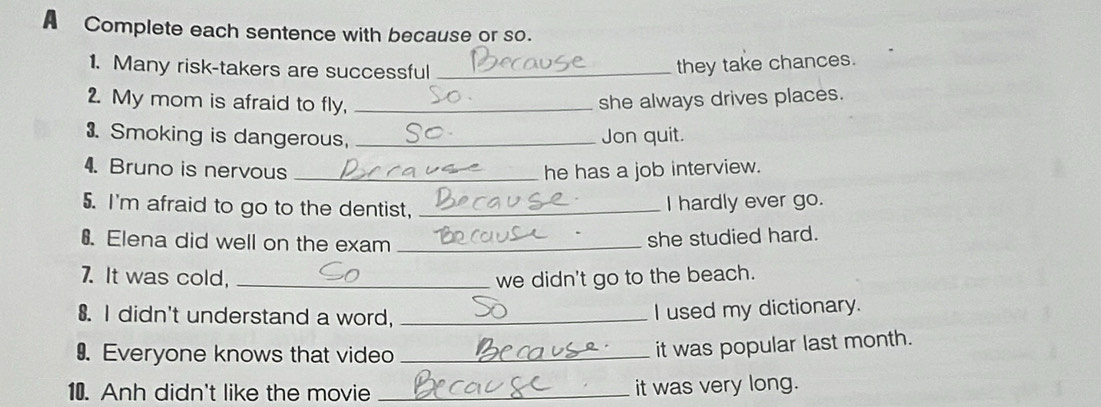 A Complete each sentence with because or so.
1. Many risk-takers are successful Because they take chances.
2. My mom is afraid to fly, So. she always drives places.
3. Smoking is dangerous, So. Jon quit.
4. Bruno is nervous Because he has a job interview.
5. I'm afraid to go to the dentist, Because. I hardly ever go.
6. Elena did well on the exam Because. she studied hard.
7. It was cold, So we didn't go to the beach.
8. I didn't understand a word, So I used my dictionary.
9. Everyone knows that video Because. it was popular last month.
10. Anh didn't like the movie Because. it was very long.